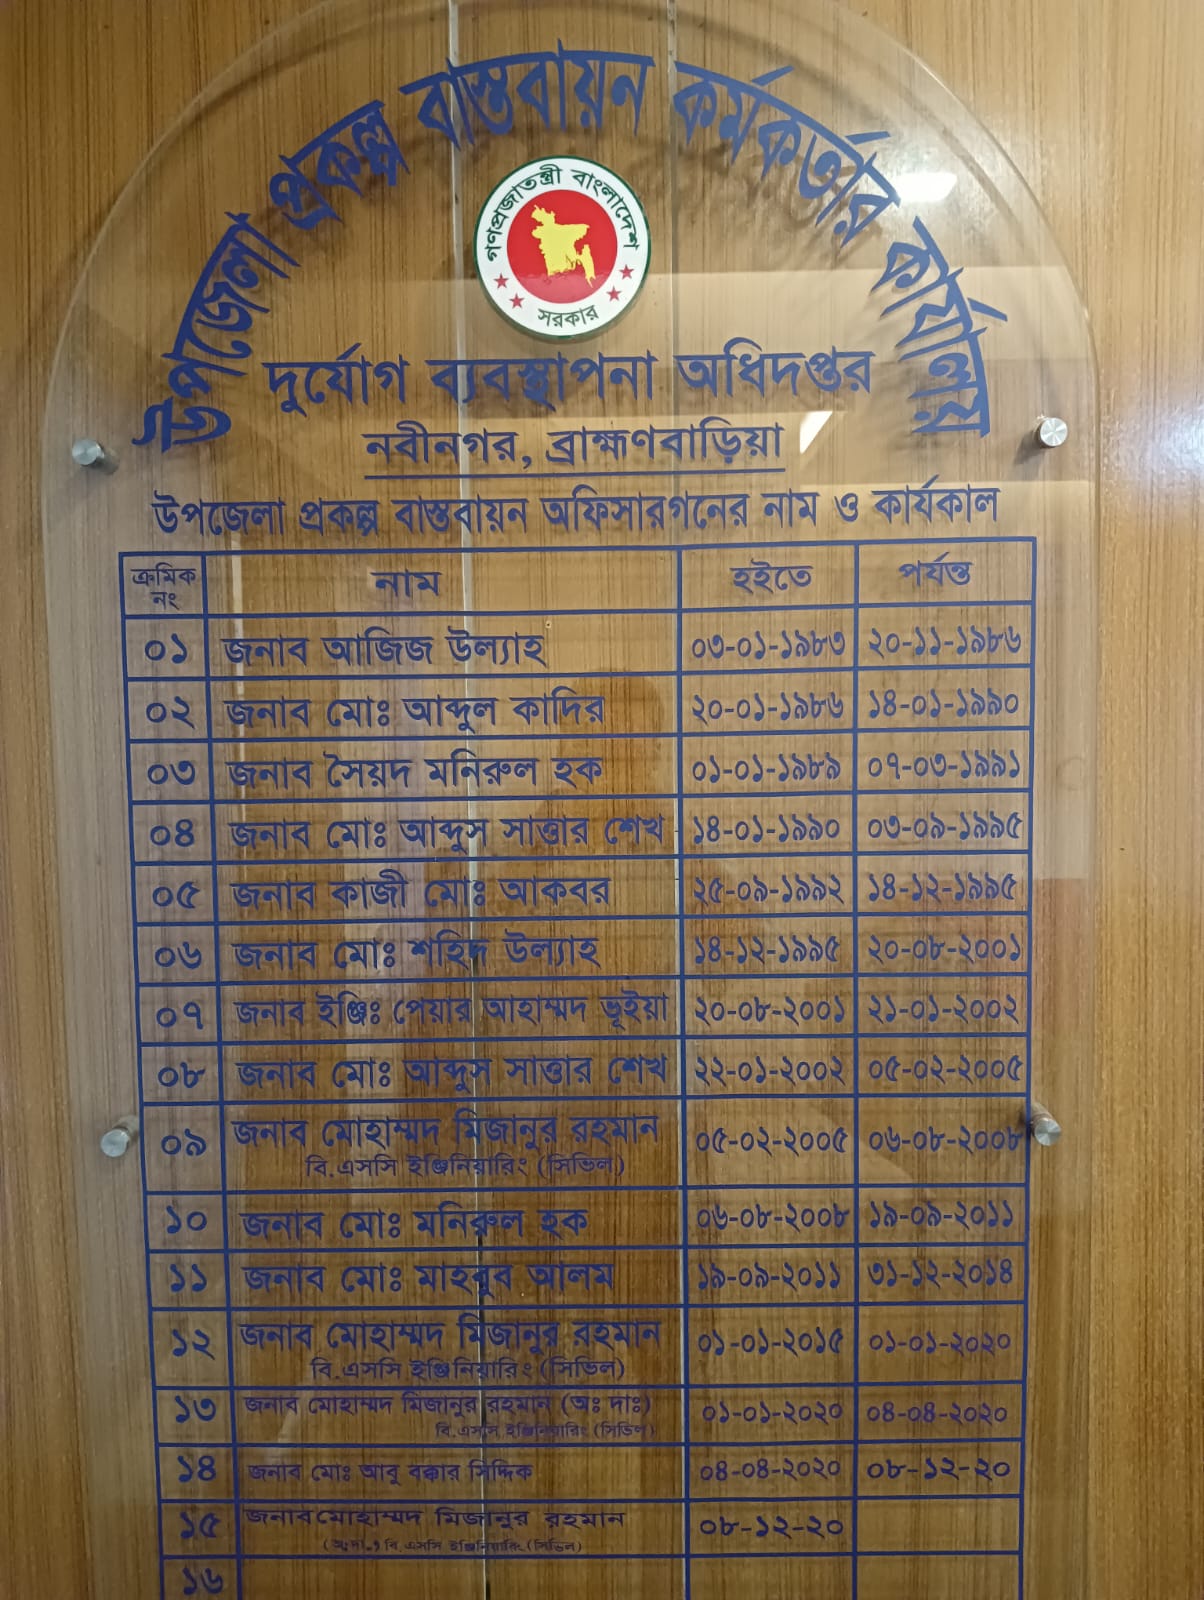 উপজেলা প্রকল্প বাস্তবায়ন কর্মকর্তার কার্যালয়
গণপ্রজাতন্ত্রী বাংলাদেশ
সরকার
দুর্যোগ ব্যবস্থাপনা অধিদপ্তর
নবীনগর, ব্রাহ্মণবাড়িয়া
উপজেলা প্রকল্প বাস্তবায়ন অফিসারগনের নাম ও কার্যকাল
ক্রমিক নং নাম হইতে পর্যন্ত
০১ জনাব আজিজ উল্যাহ ০৩-০১-১৯৮৩ ২০-১১-১৯৮৬
০২ জনাব মোঃ আব্দুল কাদির ২০-০১-১৯৮৬ ১৪-০১-১৯৯০
০৩ জনাব সৈয়দ মনিরুল হক ০১-০১-১৯৮৯ ০৭-০৩-১৯৯১
০৪ জনাব মোঃ আব্দুস সাত্তার শেখ ১৪-০১-১৯৯০ ০৩-০৯-১৯৯৫
০৫ জনাব কাজী মোঃ আকবর ২৫-০৯-১৯৯২ ১৪-১২-১৯৯৫
০৬ জনাব মোঃ শহিদ উল্যাহ ১৪-১২-১৯৯৫ ২০-০৮-২০০১
০৭ জনাব ইঞ্জিঃ পেয়ার আহাম্মদ ভূইয়া ২০-০৮-২০০১ ২১-০১-২০০২
০৮ জনাব মোঃ আব্দুস সাত্তার শেখ ২২-০১-২০০২ ০৫-০২-২০০৫
০৯ জনাব মোহাম্মদ মিজানুর রহমান ০৫-০২-২০০৫ ০৬-০৮-২০০৮
বি.এসসি ইঞ্জিনিয়ারিং (সিভিল)
১০ জনাব মোঃ মনিরুল হক ০৬-০৮-২০০৮ ১৯-০৯-২০১১
১১ জনাব মোঃ মাহবুব আলম ১৯-০৯-২০১১ ৩১-১২-২০১৪
১২ জনাব মোহাম্মদ মিজানুর রহমান ০১-০১-২০১৫ ০১-০১-২০২০
বি.এসসি ইঞ্জিনিয়ারিং (সিভিল)
১৩ জনাব মোহাম্মদ মিজানুর রহমান (অঃ দাঃ) ০১-০১-২০২০ ০৪-০৪-২০২০
বি.এসসি ইঞ্জিনিয়ারিং (সিভিল)
১৪ জনাব মোঃ আবু বক্কার সিদ্দিক ০৪-০৪-২০২০ ০৮-১২-২০
১৫ জনাব মোহাম্মদ মিজানুর রহমান ০৮-১২-২০
বি.এসসি ইঞ্জিনিয়ারিং (সিভিল)
১৬